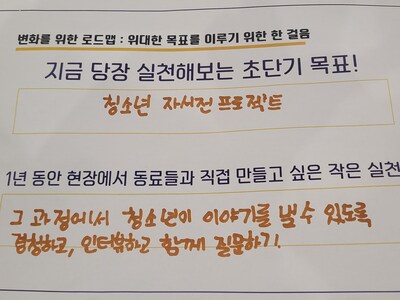 변화를 위한 로드맵 : 위대한 목표를 이루기 위한 한 걸음
지금 당장 실천해보는 초단기 목표!
청소년 자서전 프로젝트
1년 동안 현장에서 동료들과 직접 만들고 싶은 작은 실천
그 과정에서 청소년이 이야기를 낼 수 있도록
경청하고, 인터뷰하고 함께 질문하기.